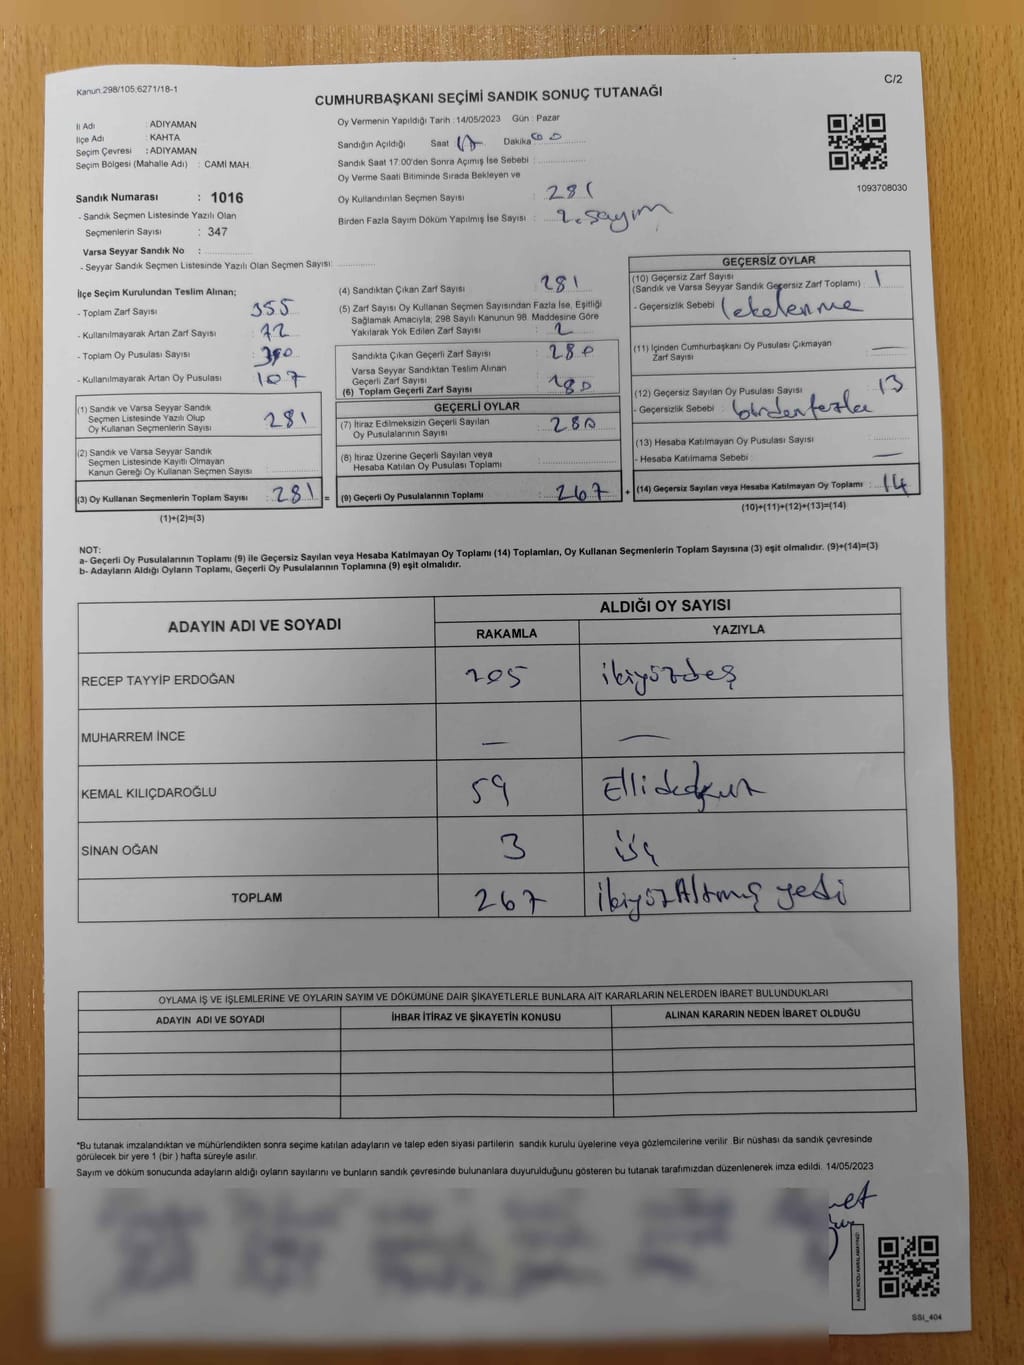 Kanun.298/105;6271/18-1
C/2
CUMHURBAŞKANI SEÇİMİ SANDIK SONUÇ TUTANAĞI
İl Adı : ADIYAMAN
İlçe Adı : KAHTA
Seçim Çevresi : ADIYAMAN
Seçim Bölgesi (Mahalle Adı) : CAMİ MAH.
Sandık Numarası : 1016
- Sandık Seçmen Listesinde Yazılı Olan
Seçmenlerin Sayısı : 347
Varsa Seyyar Sandık No :
- Seyyar Sandık Seçmen Listesinde Yazılı Olan Seçmen Sayısı:
Oy Vermenin Yapıldığı Tarih :14/05/2023 Gün : Pazar
Sandığın Açıldığı Saat Dakika
Sandık Saat 17:00'den Sonra Açımış İse Sebebi :
Oy Verme Saati Bitiminde Sırada Bekleyen ve
Oy Kullandırılan Seçmen Sayısı : 281
Birden Fazla Sayım Döküm Yapılmış İse Sayısı : 2. sayım
1093708030
İlçe Seçim Kurulundan Teslim Alınan;
- Toplam Zarf Sayısı : 355
- Kullanılmayarak Artan Zarf Sayısı : 72
- Toplam Oy Pusulası Sayısı :
- Kullanılmayarak Artan Oy Pusulası : 107
(1) Sandık ve Varsa Seyyar Sandık
Seçmen Listesinde Yazılı Olup
Oy Kullanan Seçmenlerin Sayısı : 281
(2) Sandık ve Varsa Seyyar Sandık
Seçmen Listesinde Kayıtlı Olmayan
Kanun Gereği Oy Kullanan Seçmen Sayısı :
(3) Oy Kullanan Seçmenlerin Toplam Sayısı : 281 =
(1)+(2)=(3)
(4) Sandıktan Çıkan Zarf Sayısı : 281
(5) Zarf Sayısı Oy Kullanan Seçmen Sayısından Fazla İse, Eşitliği
Sağlamak Amacıyla; 298 Sayılı Kanunun 98. Maddesine Göre
Yakılarak Yok Edilen Zarf Sayısı : 2
Sandıkta Çıkan Geçerli Zarf Sayısı : 280
Varsa Seyyar Sandıktan Teslim Alınan
Geçerli Zarf Sayısı :
(6) Toplam Geçerli Zarf Sayısı : 280
GEÇERLİ OYLAR
(7) İtiraz Edilmeksizin Geçerli Sayılan
Oy Pusulalarının Sayısı : 280
(8) İtiraz Üzerine Geçerli Sayılan veya
Hesaba Katılan Oy Pusulası Toplamı :
(9) Geçerli Oy Pusulalarının Toplamı : 267 +
GEÇERSİZ OYLAR
(10) Geçersiz Zarf Sayısı
(Sandık ve Varsa Seyyar Sandık Geçersiz Zarf Toplamı) : 1
- Geçersizlik Sebebi : lekelenme
(11) İçinden Cumhurbaşkanı Oy Pusulası Çıkmayan
Zarf Sayısı : —
(12) Geçersiz Sayılan Oy Pusulası Sayısı : 13
- Geçersizlik Sebebi : birden fazla
(13) Hesaba Katılmayan Oy Pusulası Sayısı :
- Hesaba Katılmama Sebebi : —
(14) Geçersiz Sayılan veya Hesaba Katılmayan Oy Toplamı : 14
(10)+(11)+(12)+(13)=(14)
NOT:
a- Geçerli Oy Pusulalarının Toplamı (9) ile Geçersiz Sayılan veya Hesaba Katılmayan Oy Toplamı (14) Toplamları, Oy Kullanan Seçmenlerin Toplam Sayısına (3) eşit olmalıdır. (9)+(14)=(3)
b- Adayların Aldığı Oyların Toplamı, Geçerli Oy Pusulalarının Toplamına (9) eşit olmalıdır.
ADAYIN ADI VE SOYADI
ALDIĞI OY SAYISI
RAKAMLA YAZIYLA
RECEP TAYYİP ERDOĞAN 205 ikiyüzbeş
MUHARREM İNCE — —
KEMAL KILIÇDAROĞLU 59 Ellidokuz
SİNAN OĞAN 3 üç
TOPLAM 267 ikiyüzAltmış yedi
OYLAMA İŞ VE İŞLEMLERİNE VE OYLARIN SAYIM VE DÖKÜMÜNE DAİR ŞİKAYETLERLE BUNLARA AİT KARARLARIN NELERDEN İBARET BULUNDUKLARI
ADAYIN ADI VE SOYADI İHBAR İTİRAZ VE ŞİKAYETİN KONUSU ALINAN KARARIN NEDEN İBARET OLDUĞU
*Bu tutanak imzalandıktan ve mühürlendikten sonra seçime katılan adayların ve talep eden siyasi partilerin sandık kurulu üyelerine veya gözlemcilerine verilir. Bir nüshası da sandık çevresinde
görülecek bir yere 1 (bir ) hafta süreyle asılır.
Sayım ve döküm sonucunda adayların aldığı oyların sayılarını ve bunların sandık çevresinde bulunanlara duyurulduğunu gösteren bu tutanak tarafımızdan düzenlenerek imza edildi. 14/05/2023
KARE KODU KARALAMAYINIZ!
SSI_404